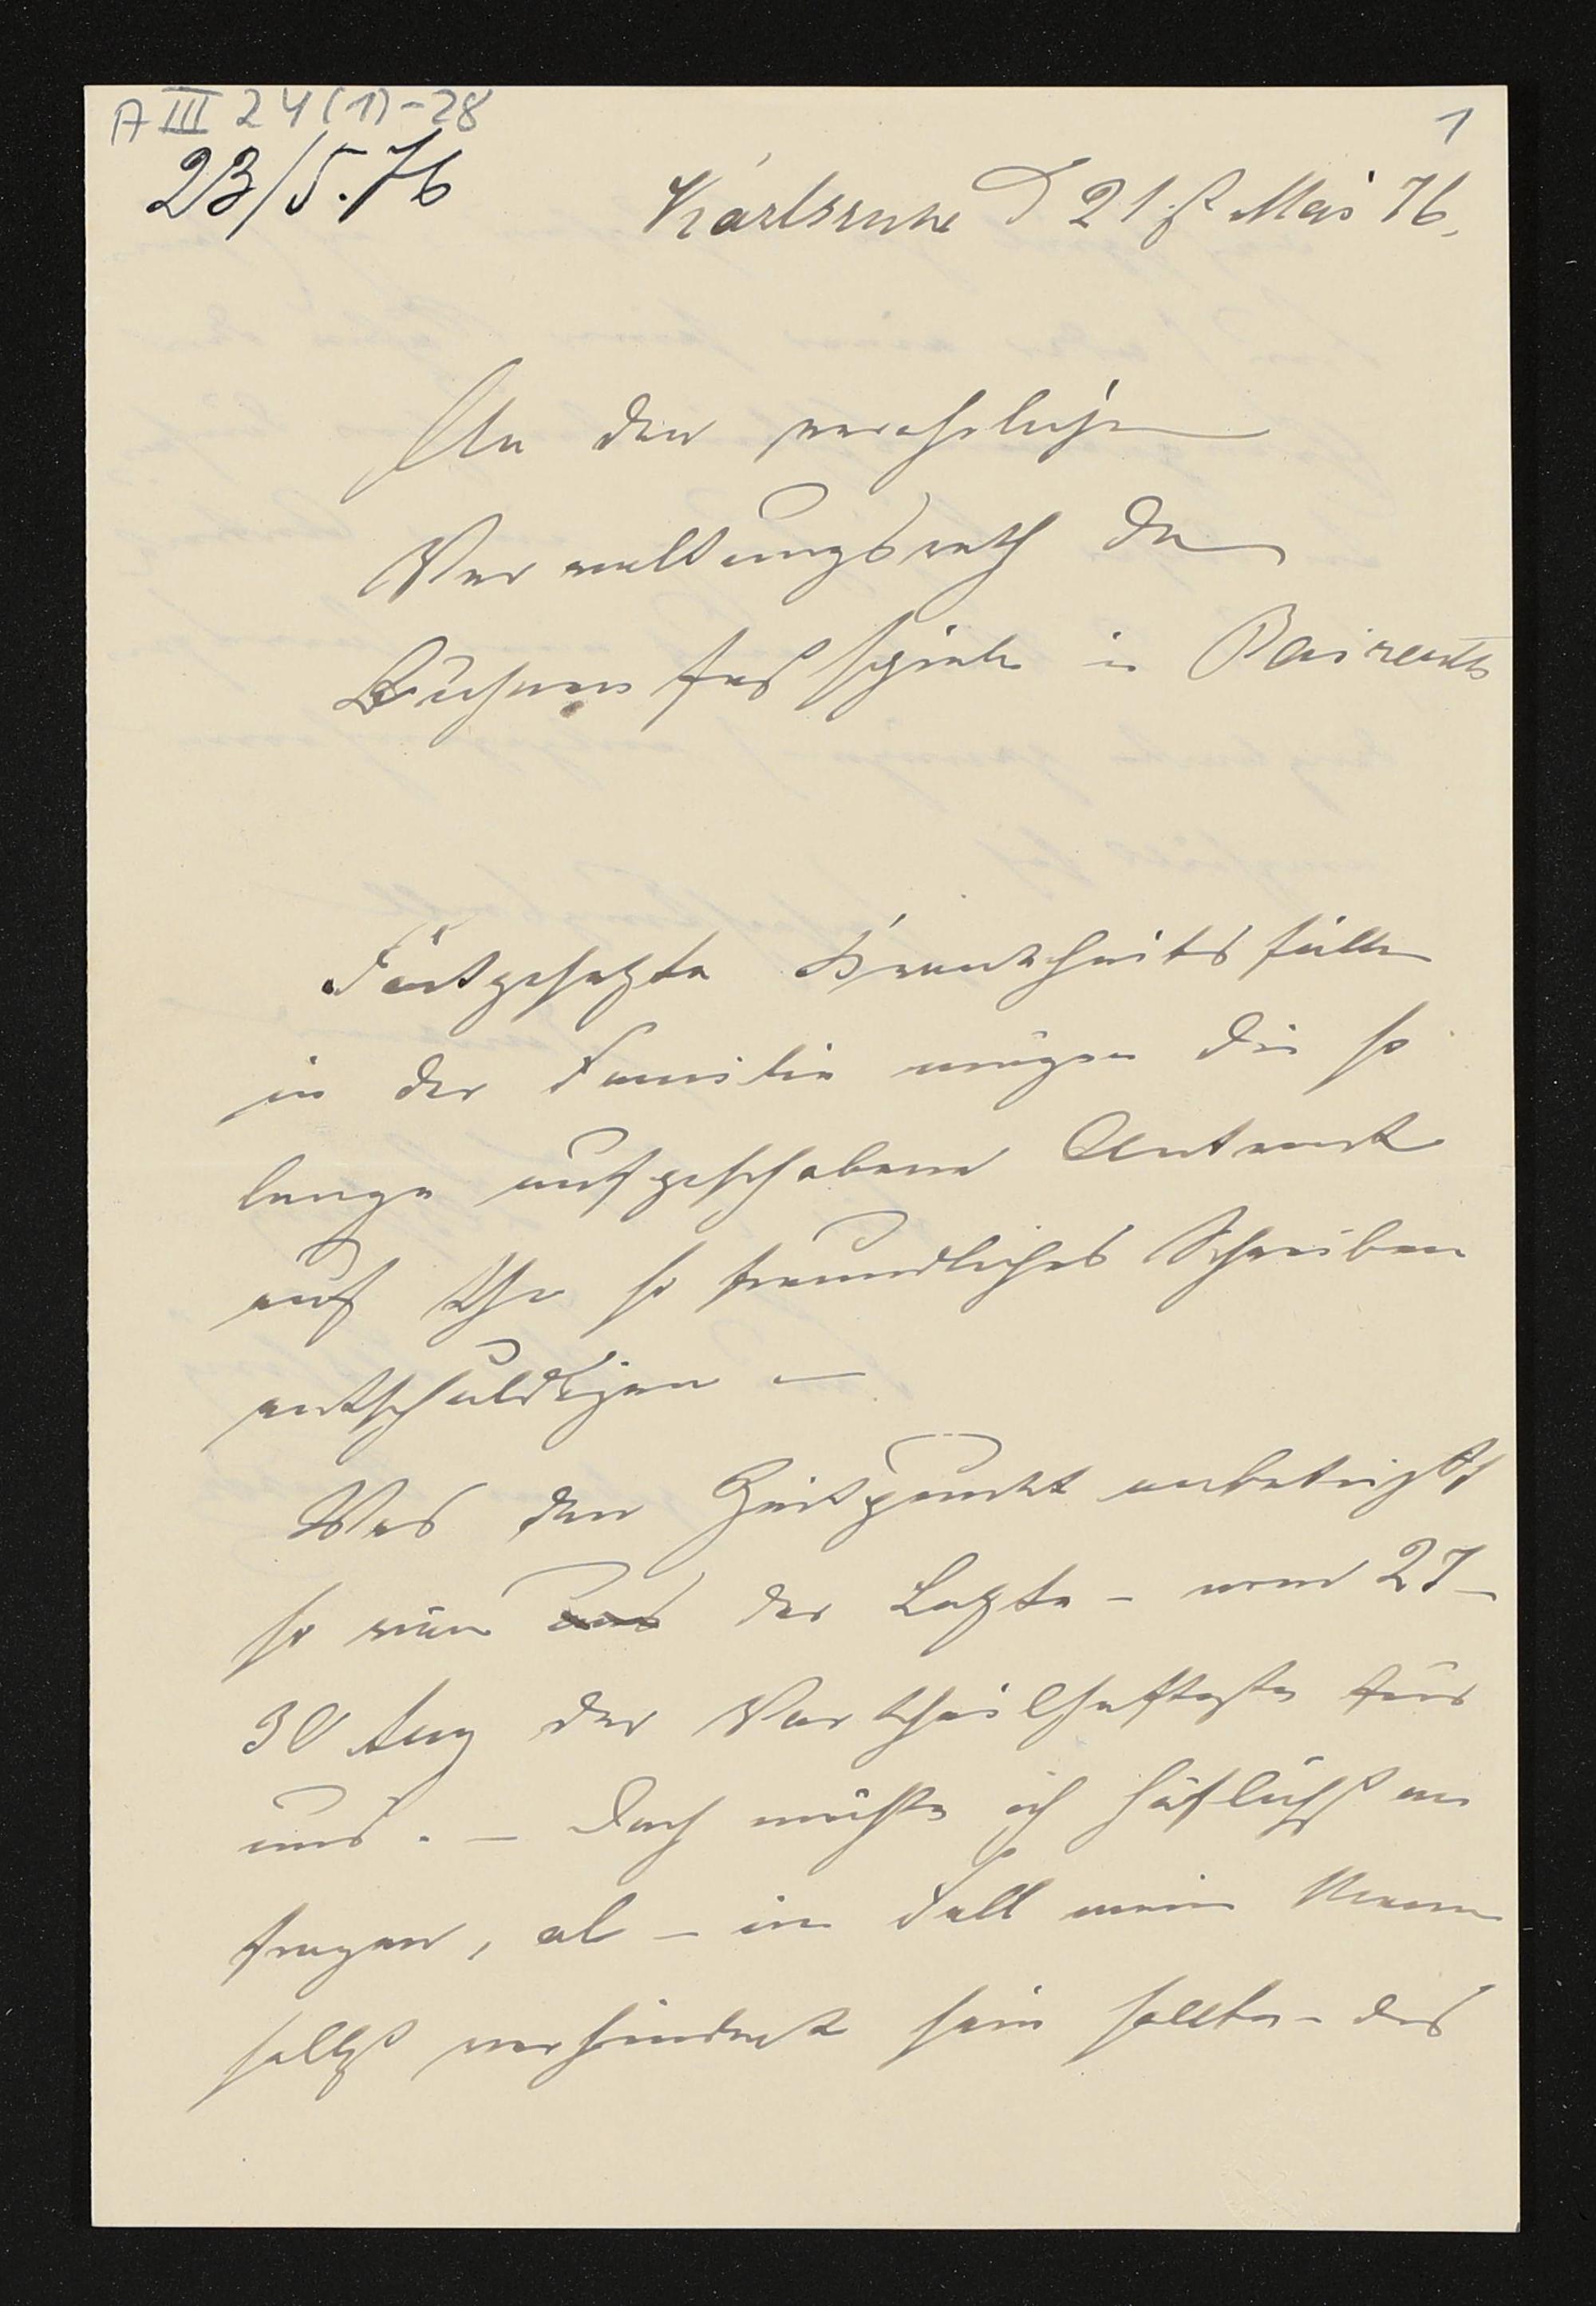 A III 24 (1)-28
1
23/5.76
Karlsruhe D 21st Mai 76.
An den verehrlichen
Verwaltungsrath der
Bühnenfestspiele in Baireuth
Fortgesetzte Krankheitsfälle
in der Familie mögen die so
lange aufgeschobene Antwort
auf Ihr so freundliches Schreiben
entschuldigen —
Was den Zeitpunkt anbetrifft
so wäre der Letzte - vom 27-
30 Aug der Vortheilhafteste für
uns. — Doch möchte ich höflichst an
fragen, ob — im Fall mein Mann
selbst verhindert sein sollte - das